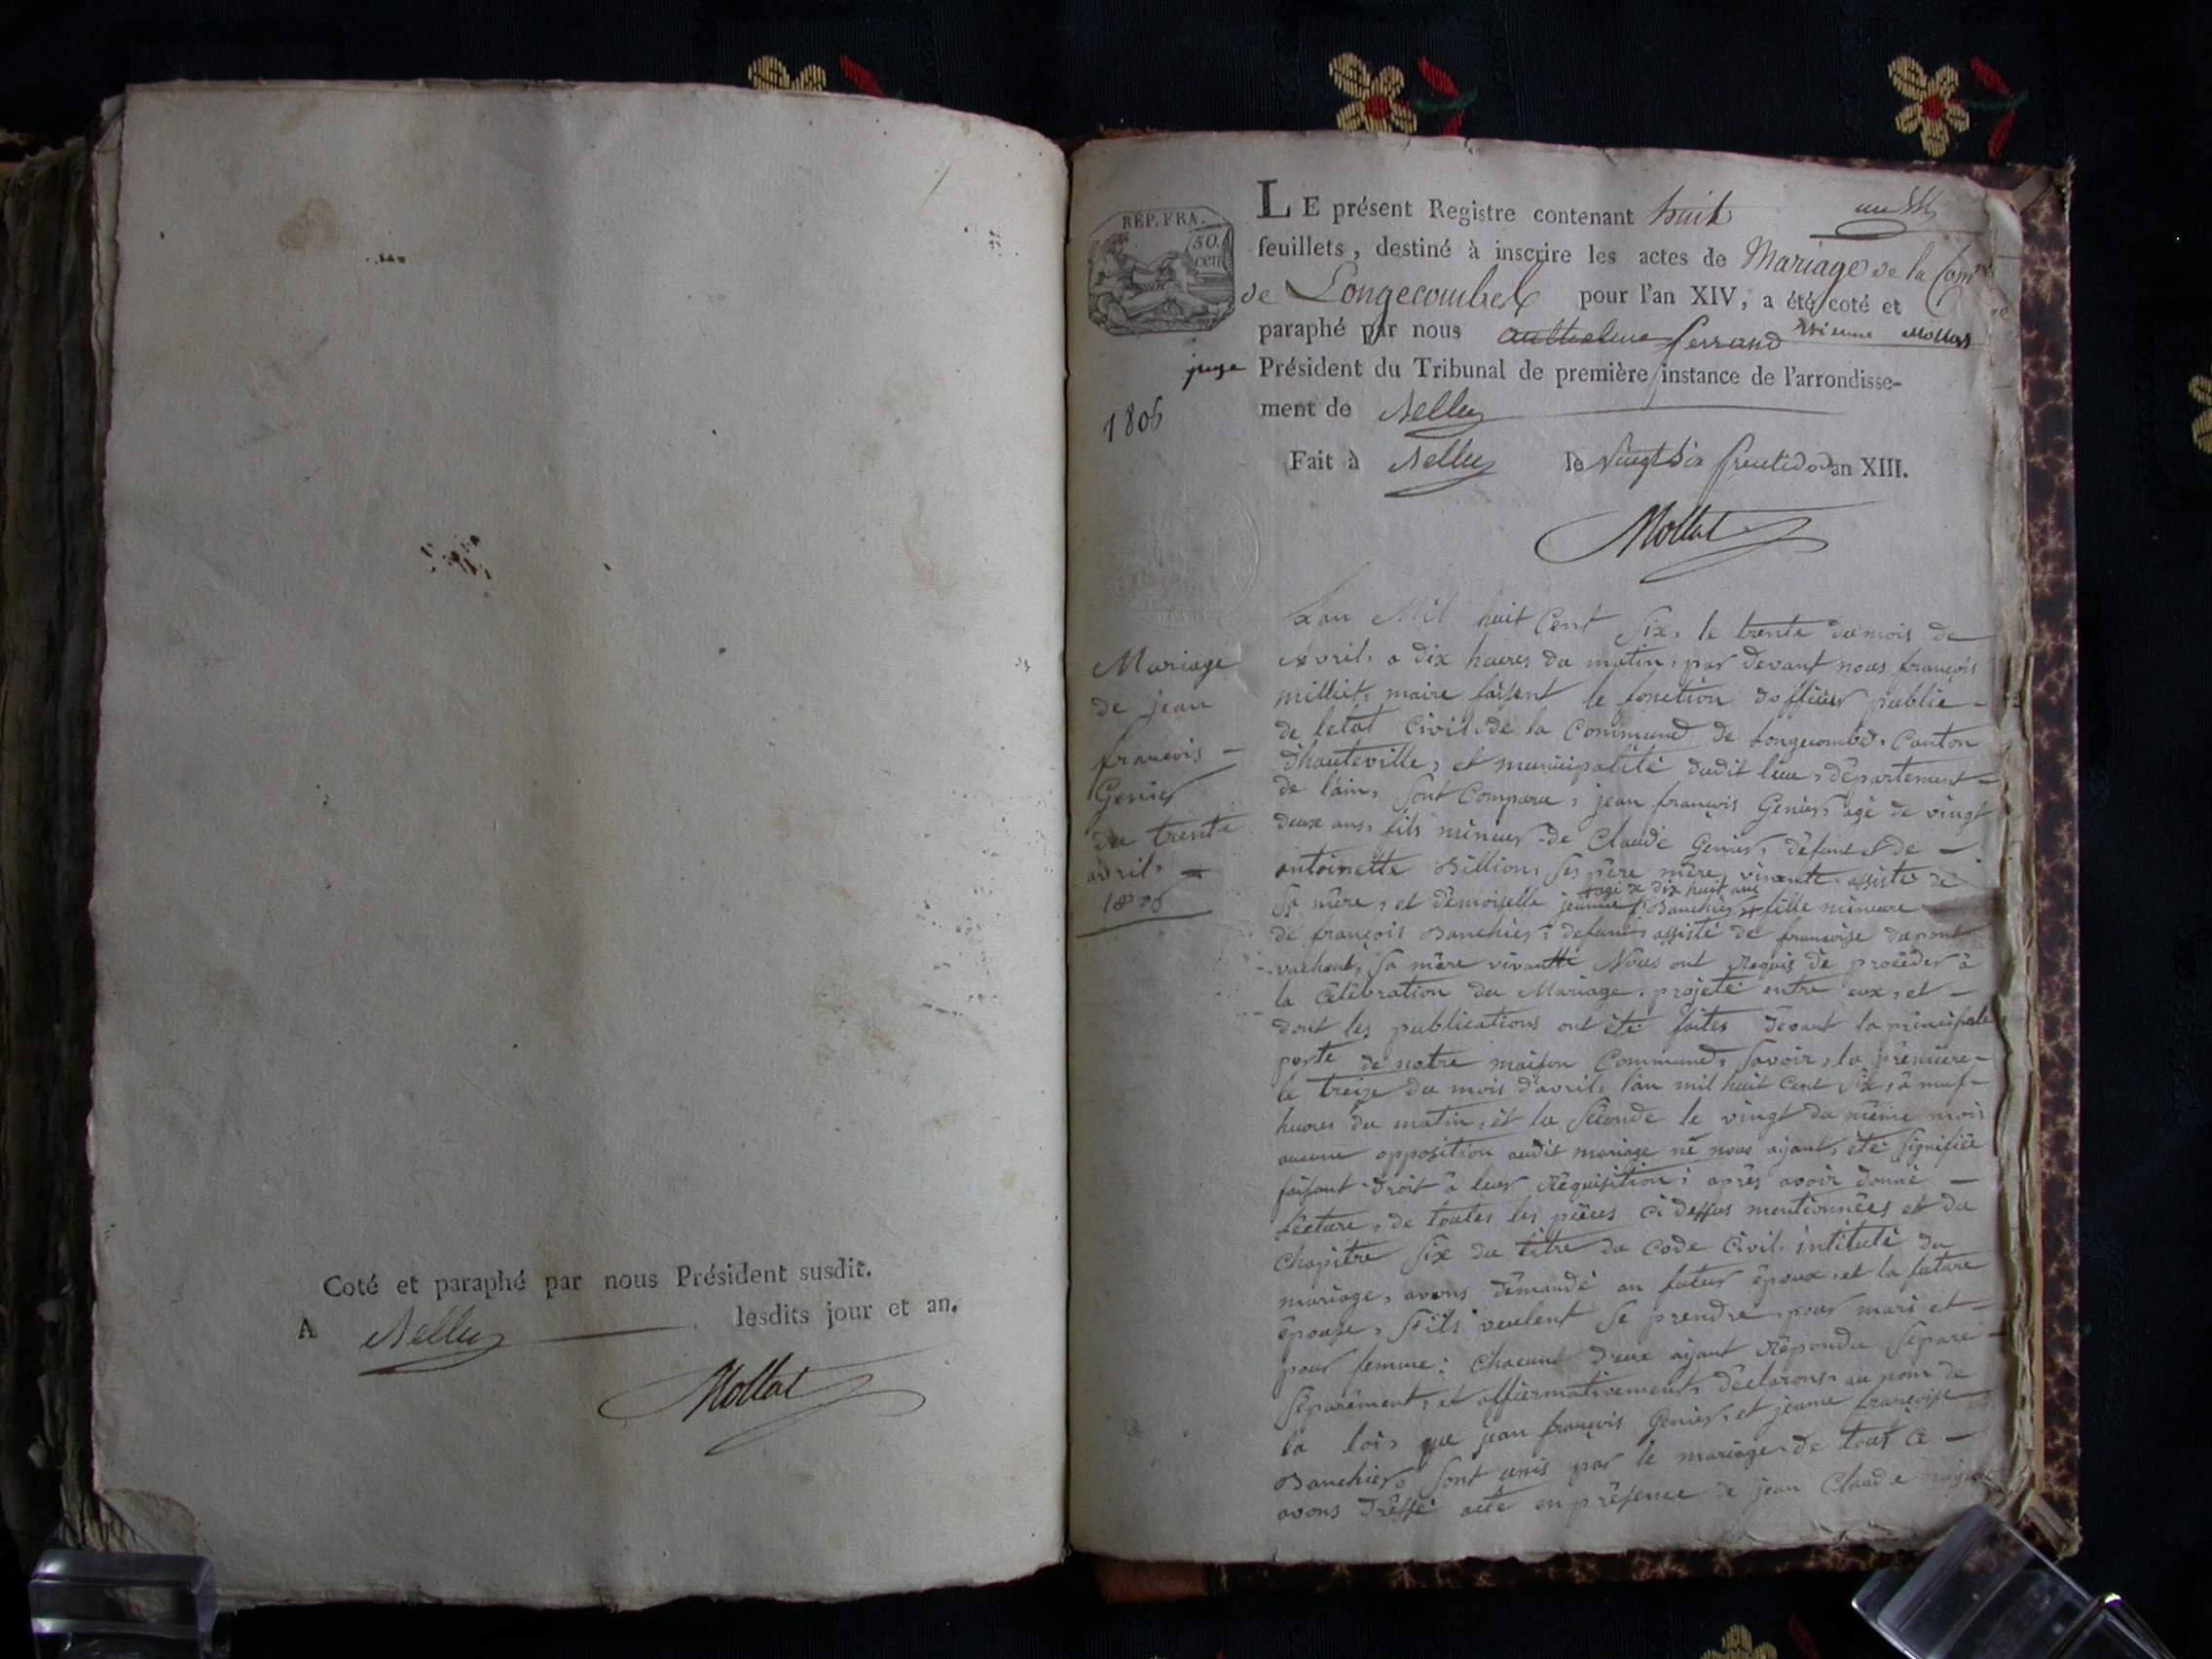 Coté et paraphé par nous Président susdit.
A Belley lesdits jour et an.
Mollat
RÉP. FRA.
50. cen
LE présent Registre contenant huit
feuillets, destiné à inscrire les actes de Mariage de la Comne
de Longecombe pour l'an XIV, a été coté et
paraphé par nous anthelme ferrand Mollat
juge Président du Tribunal de première instance de l'arrondisse-
ment de Belley
1806
Fait à Belley le Vingt Six fructidor an XIII.
Mollat
Mariage
de jean
francois -
Genier
du trente
avril. -
1806
Lan Mil huit Cent Six, le trente du mois de
Avril, a dix heures du matin, par devant nous françois
milliet, maire faisant le fonction dofficier public -
de letat Civil de la Commune de Longecombe, Canton
d'hauteville, et municipalité dudit lieu, département -
de l'ain, sont Comparu, jean françois Genier agé de vingt
deux ans, fils mineur de Claude Genier, défunt et de -
antoinette Billion, ses père mère, vivante assisté de
Sa mère, et demoiselle jeanne f. Banchier, fille mineure
agé de dix huit ans
de françois Banchier, defunt, assisté de françoise dupont
vachout, sa mère vivante Nous ont Requis de procéder à
la Célébration du Mariage, projeté entre eux, et -
dont les publications ont été faites devant la principale
porte de notre maison Commune, Savoir, la premiere -
le treize du mois d'avril, lan mil huit Cent Six, à neuf -
heures du matin, et la Séconde le vingt du même mois
aucune opposition audit mariage ne nous ayant, été Signifiée
faisant droit à leur Réquisition; après avoir donné -
Lecture, de toutes les pièces Ci dessus mentionnées et du
Chapitre Six du titre du Code Civil, intitulé du
mariage, avons démandé au futur époux, et la future
épouse, S'ils veulent Se prendre, pour mari et -
pour femme: Chacune d'eux ayant Répondu Séparé -
Séparément, et affiermativement, déclarons, au nom de
la loi, que jean françois Genier, et jeanne françoise
Banchier, Sont unis par le mariage, de tout Ce -
avons dréssé acte en présence de jean Claude